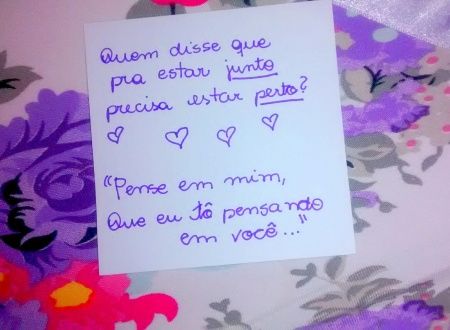 Quem disse que
pra estar junto
precisa estar perto?
"Pense em mim,
Que eu tô pensando
em você..."